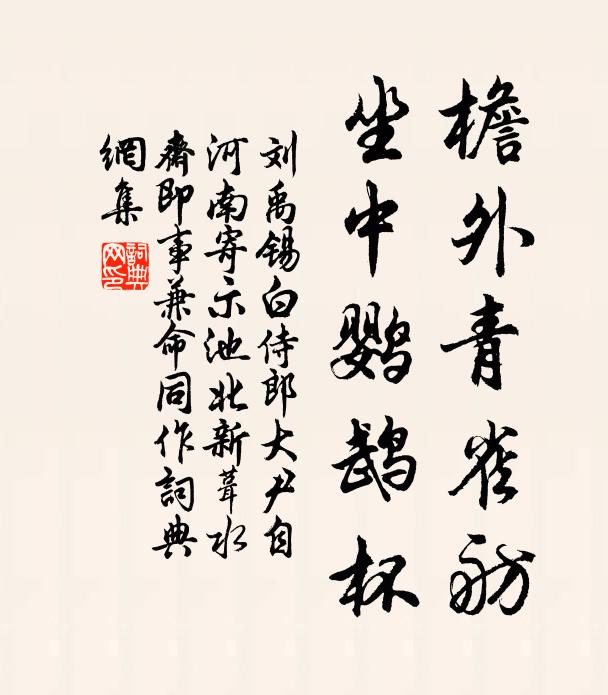 檐外青雀舫
坐中鸚鵡杯
刘禹錫白侍郎大尹自
河南寄示池北新葺水
齋即事兼命同作詞典
網集
詞典网印